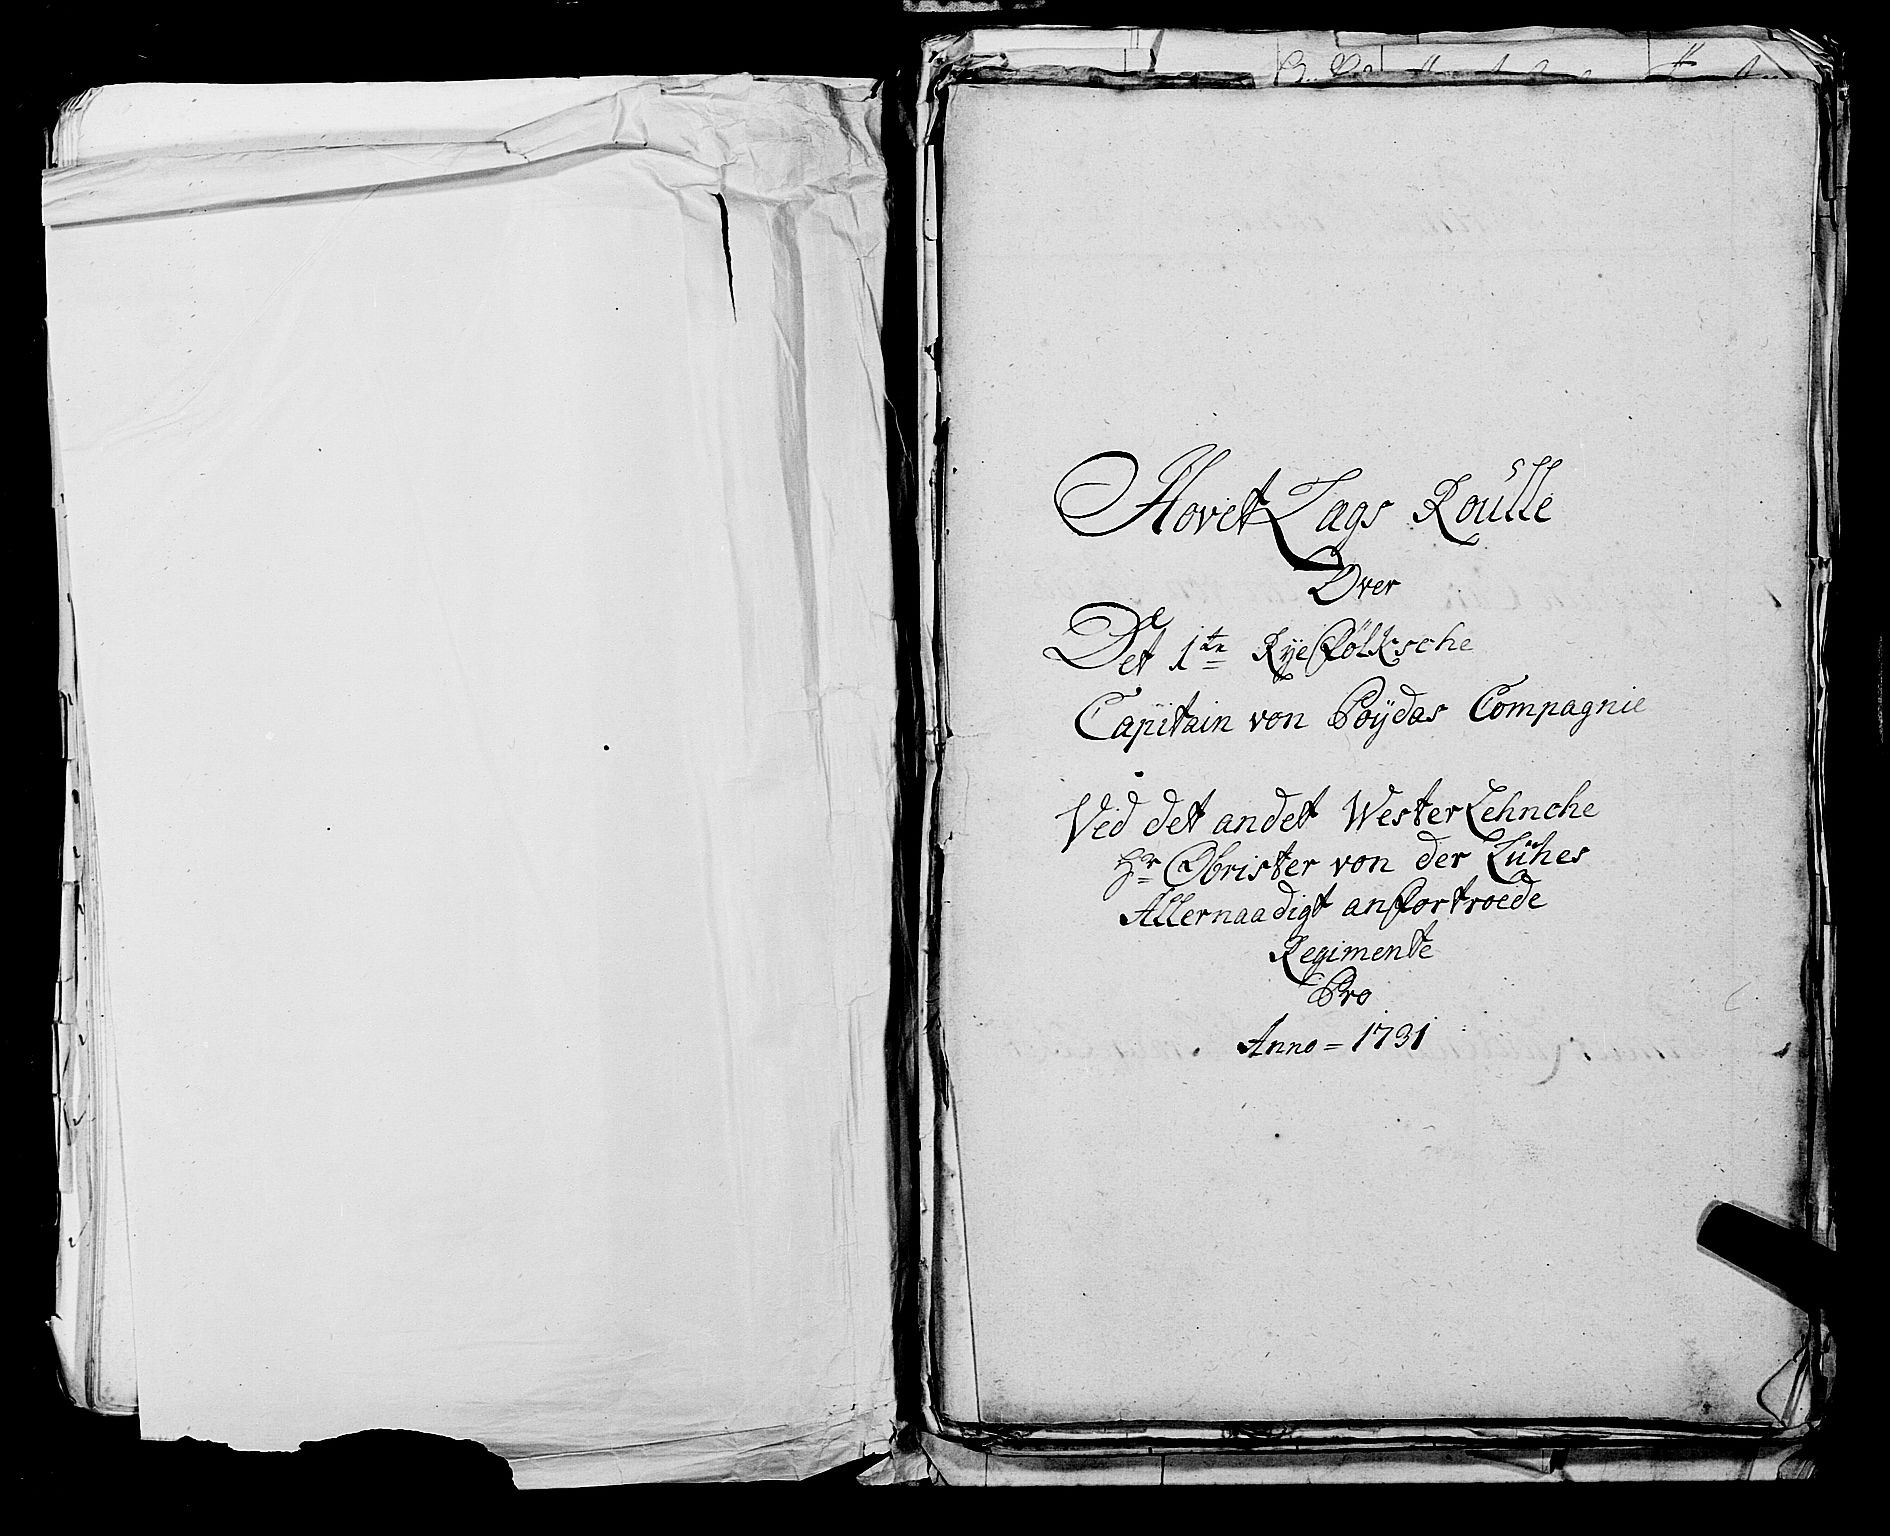 Hovet Lags Roulle
Over
Det 1te Ryefølksche
Capitain von Poÿdas Compagnie
Ved det andet Wester Lehnche
Hr Obrister von der Lühes
Allernaadigt anfortroede
Regimente
Pro
Anno = 1731